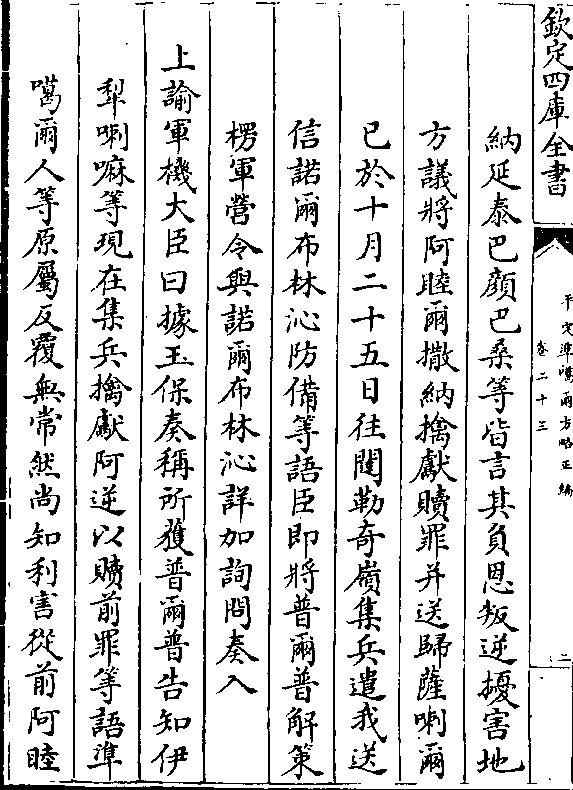 欽定四庫全書
平定準噶爾方略正編
卷二十三
二
納延泰巴顔巴桑等皆言其負恩叛逆擾害地
方議將阿睦爾撒納擒獻贖罪并送歸薩喇爾
已於十月二十五日往闥勒奇嶺集兵遣我送
信諾爾布林沁防備等語臣即將普爾普解策
楞軍營令與諾爾布林沁詳加詢問奏入
上諭軍機大臣曰據玉保奏稱所獲普爾普告知伊
犁喇嘛等現在集兵擒獻阿逆以贖前罪等語準
噶爾人等原屬反覆無常然尚知利害從前阿睦